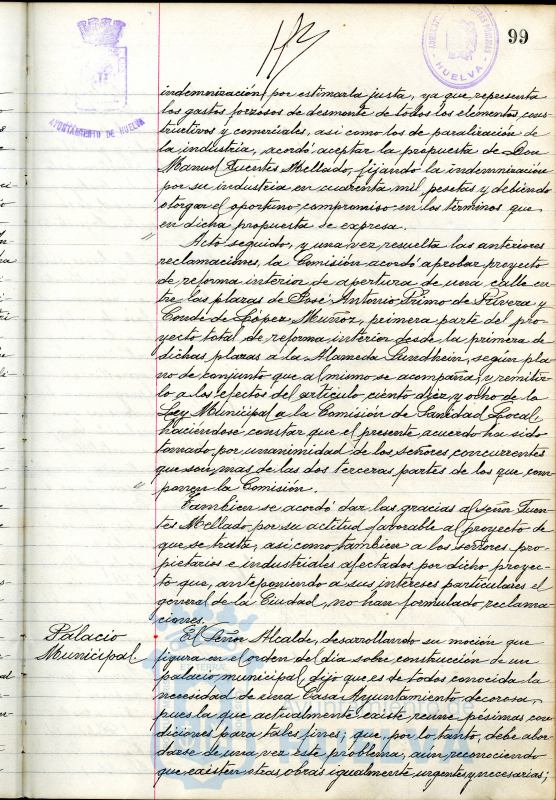 99
AYUNTAMIENTO DE HUELVA
HUELVA
indemnización, por estimarla justa, ya que representa
los gastos forzosos de desmonte de todos los elementos cons-
tructivos y comerciales, asi como los de paralización de
la industria, acordó aceptar la propuesta de Don
Manuel Fuentes Mellado, fijando la indemnización
por su industria en cuarenta mil pesetas y debiendo
otorgar el oportuno compromiso en los términos que
en dicha propuesta de expresa.
" Acto seguido, y una vez resuelta las anteriores
reclamaciones, la Comisión acordó aprobar proyecto
de reforma interior de apertura de una calle en-
tre las plazas de José Antonio Primo de Rivera y
Conde de López Muñoz, primera parte del pro-
yecto total de reforma interior desde la primera de
dichas plazas a la Alameda Sundhein, según pla-
no de conjunto que al mismo se acompaña, y remitir-
lo a los efectos del artículo ciento diez y ocho de la
Ley Municipal a la Comisión de Sanidad Local,
haciéndose constar que el presente acuerdo ha sido
tomado por unanimidad de los señores concurrentes
que son mas de las dos terceras partes de los que com-
ponen la Comisión.
" Tambien se acordó dar las gracias al Señor Fuen-
tes Mellado por su actitud favorable al proyecto de
que se trata, asi como tambien a los señores pro-
pietarios e industriales afectados por dicho proyec-
to que, anteponiendo a sus intereses particulares el
general de la Ciudad, no han formulado reclama-
ciones.
Palacio
Municipal
El Señor Alcalde, desarrollando su moción que
figura en el orden del dia sobre construcción de un
palacio municipal, dijo que es de todos conocida la
necesidad de una Casa Ayuntamiento decorosa,
pues la que actualmente existe reune pésimas con-
diciones para tales fines; que, por lo tanto, debe abor-
darse de una vez este problema, aún reconociendo
que existen otras obras igualmente urgentes y necesarias;
Ayuntamiento de